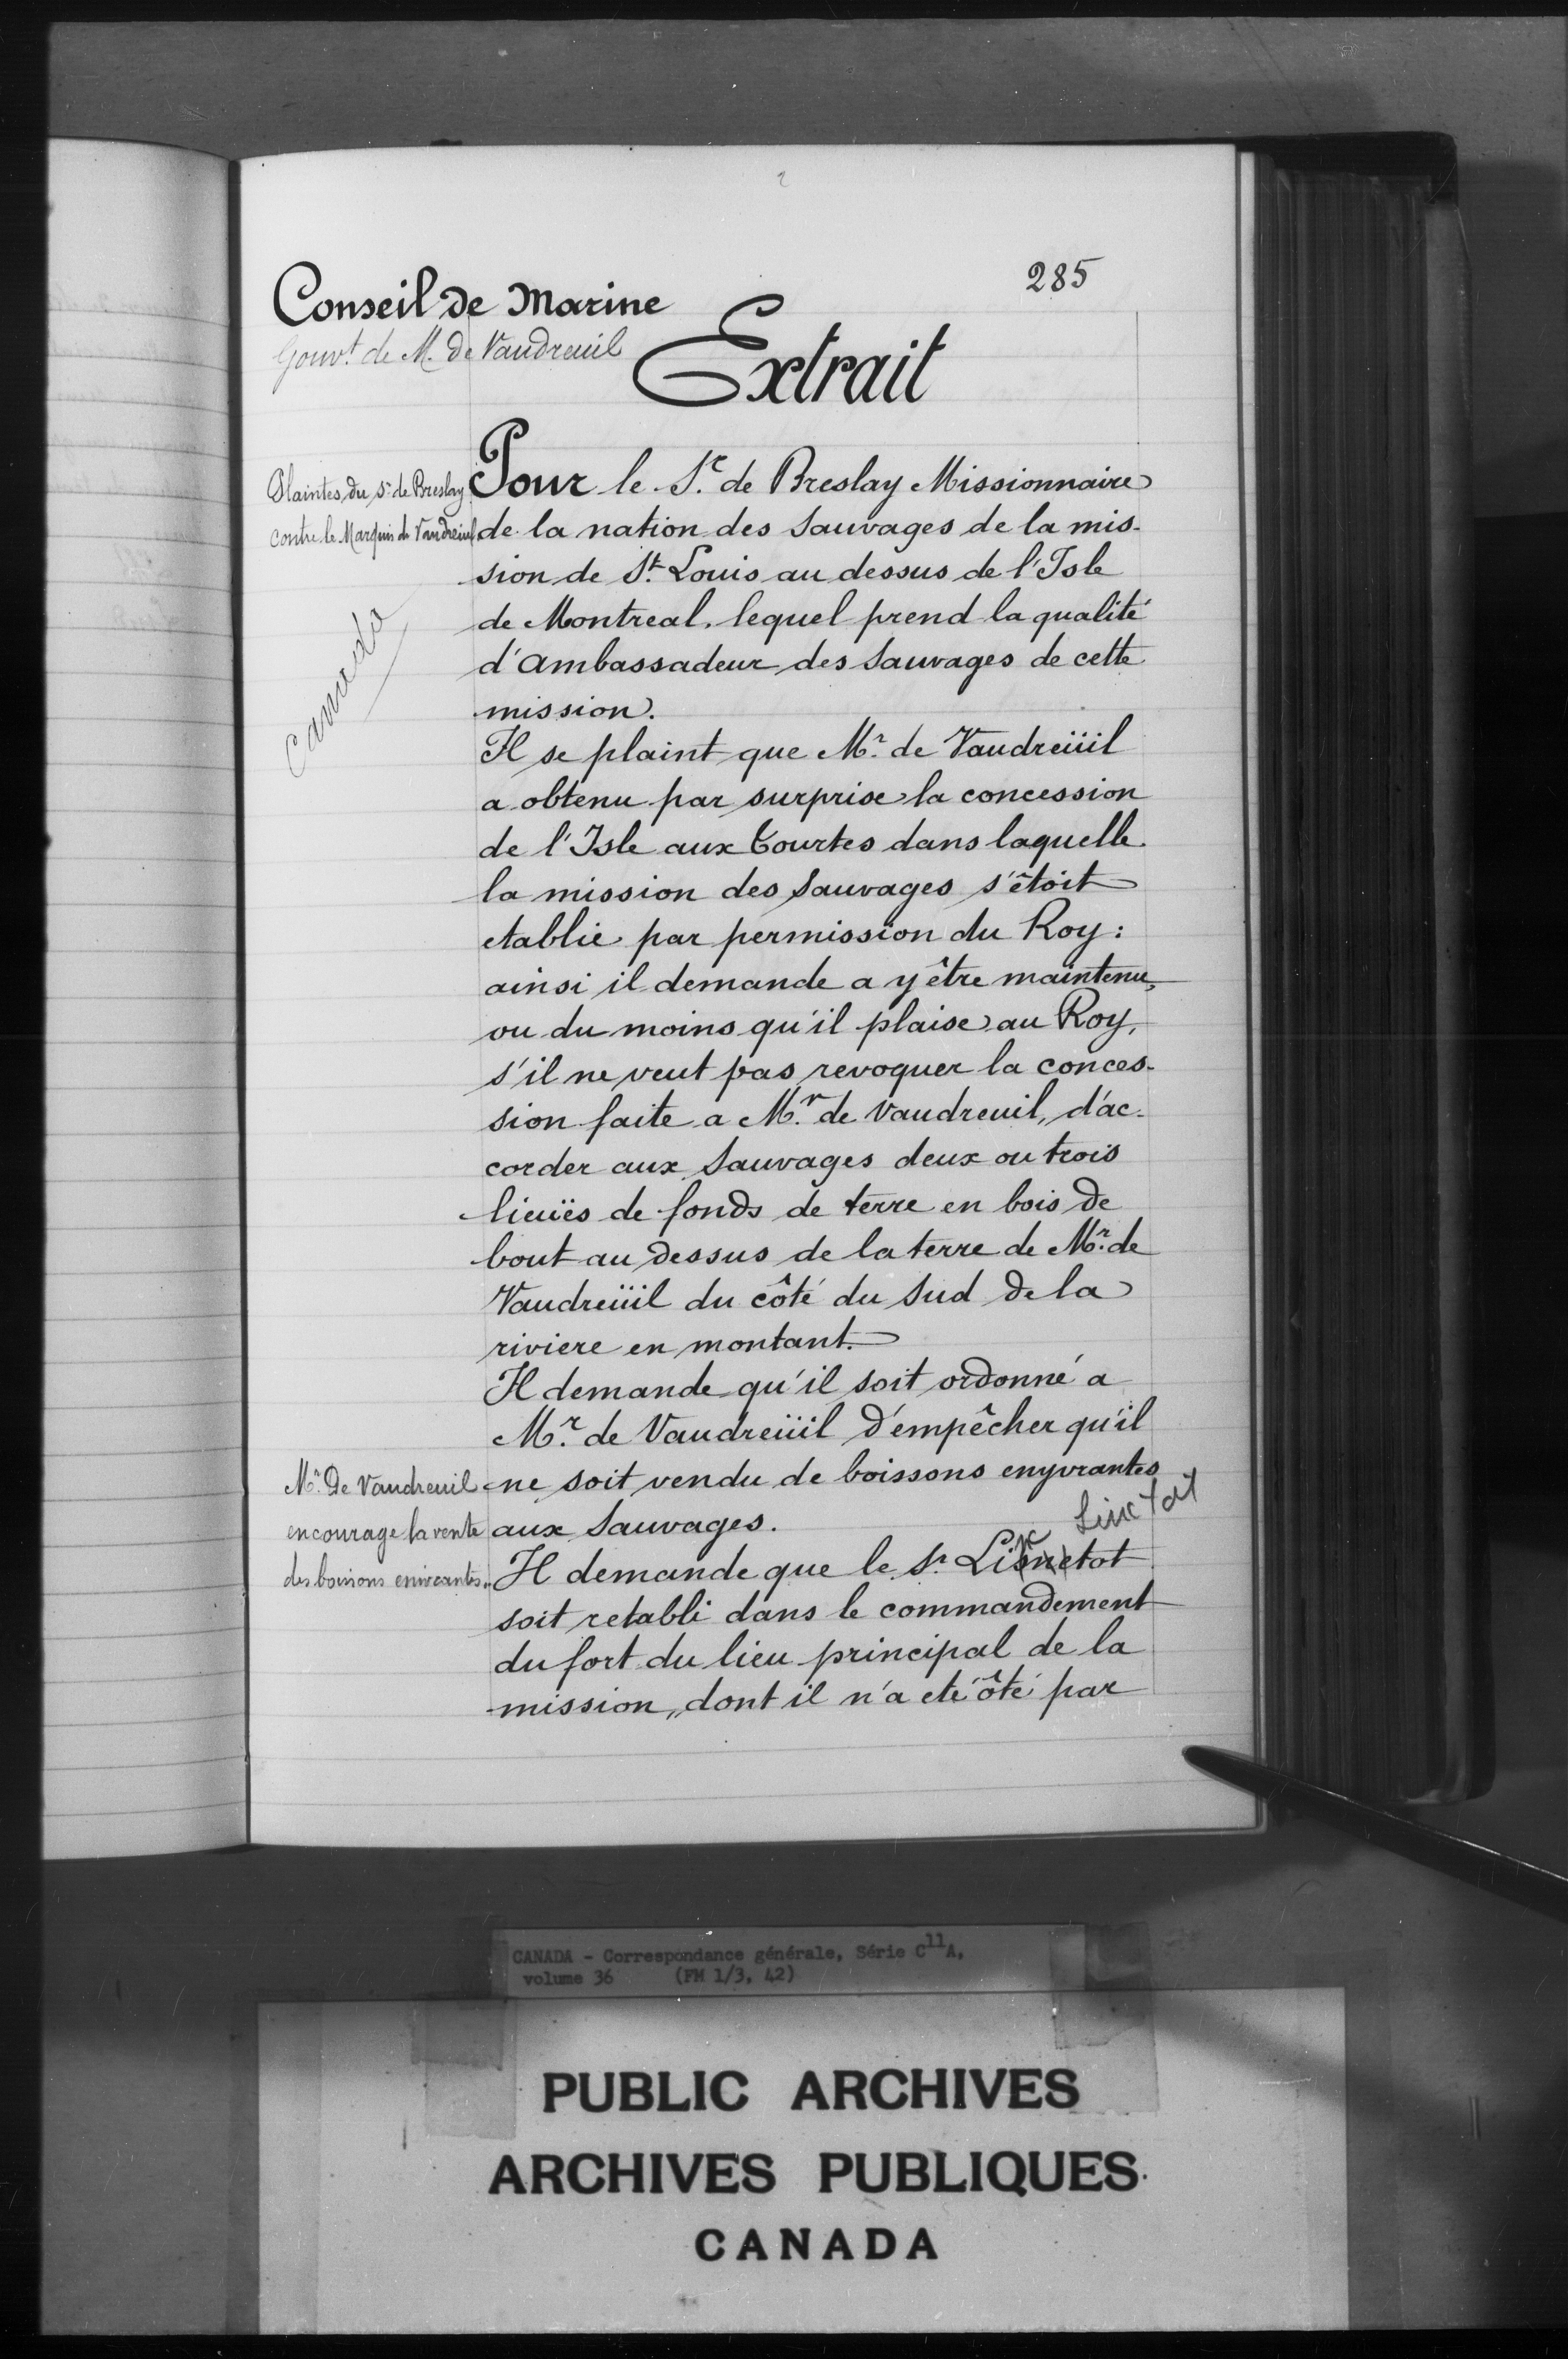 285
Conseil de Marine
Gouvt. de M. de Vaudreuil
Extrait
Plaintes du Sr. de Breslay
contre le Marquis de Vaudreuil
Canada
Pour le Sr. de Breslay Missionnaire
de la nation des Sauvages de la mis-
sion de St. Louis au dessus de l'Isle
de Montreal. lequel prend la qualité
d'ambassadeur des Sauvages de cette
mission.
Il se plaint que Mr. de Vaudreüil
a obtenu par surprise la concession
de l'Isle aux Tourtes dans laquelle
la mission des Sauvages s'étoit
etablie par permission du Roy:
ainsi il demande a y être maintenu,
ou du moins qu'il plaise au Roy,
s'il ne veut pas revoquer la conces-
sion faite a Mr. de Vaudreuil, d'ac-
corder aux Sauvages deux ou trois
lieuës de fonds de terre en bois de
bout au dessus de la terre de Mr. de
Vaudreüil du côté du Sud de la
riviere en montant.
Il demande qu'il soit ordonné a
Mr. de Vaudreüil d'empêcher qu'il
ne soit vendu de boissons enyvrantes
aux Sauvages.
Mr. De Vaudreuil
encourage la vente
des boissons enivrantes.
Linctot
Il demande que le Sr. Lisnetot
soit retabli dans le commandement
du fort du lieu principal de la
mission, dont il n'a eté ôté par
CANADA - Correspondance générale, Série C11A,
volume 36 (FM 1/3, 42)
PUBLIC ARCHIVES
ARCHIVES PUBLIQUES
CANADA